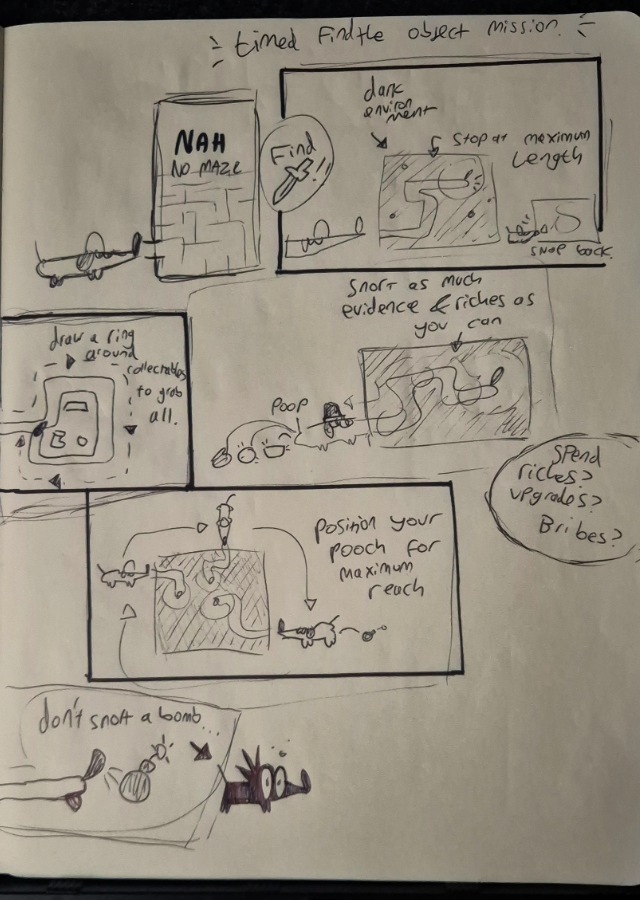 timed Find the object mission.
NAH
NO MAZE
Find
!!
dark
environ
ment
Stop at maximum
Length
snap back.
Snort as much
evidence & riches as
you can
draw a ring
around
collectables
to grab
all.
Poop
Spend
riches?
upgrades?
Bribes?
Position your
pooch for
maximum
reach
don't snort a bomb...